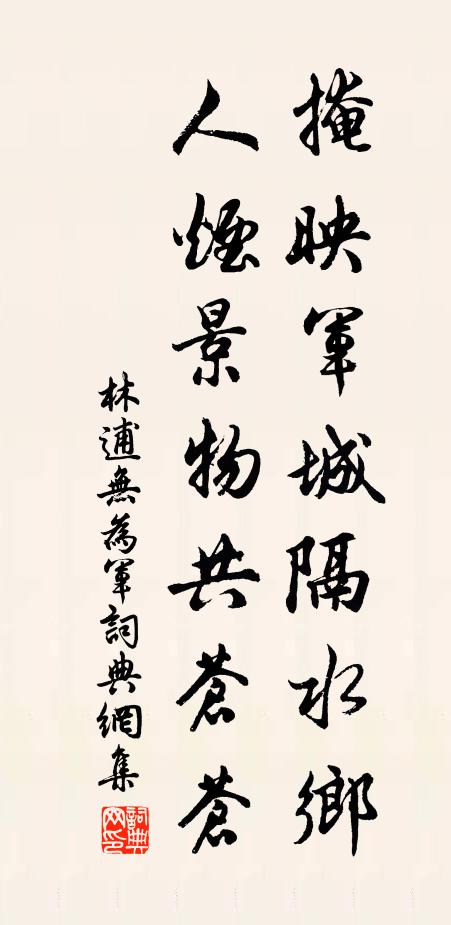 掩映軍城隔水鄉
人煙景物共蒼蒼
林逋無為軍詞典網集
詞典网印